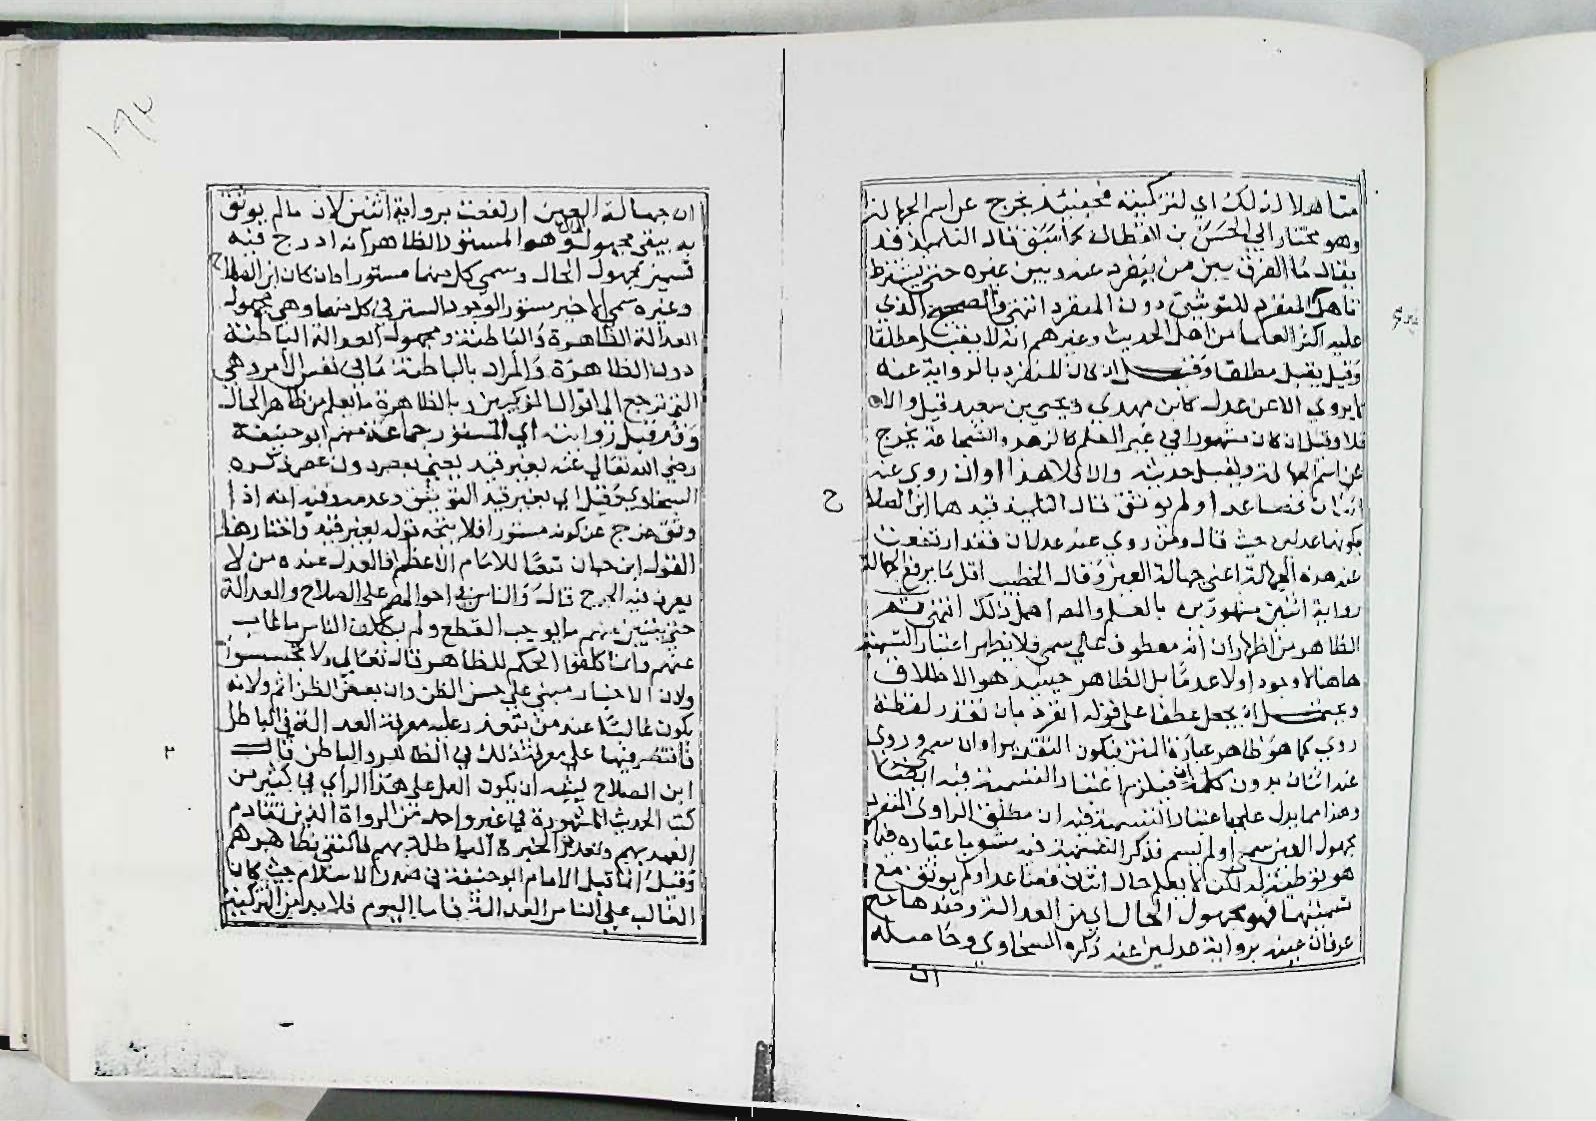 متاهلا لذلك اي لتزكيته فحينئذ يخرج عن اسم الجهالة
وهو مختار ابي الحسن بن القطان كما سبق قال التلميذ قد
يقال ما الفرق بين من ينفرد عنه وبين غيره حتى يشترط
تاهل المنفرد للتوثيق دون المنفرد انتهى والصحيح الذي
عليه اكثر العلما من اهل الحديث وغيرهم انه لا يقبل مطلقا
وقيل يقبل مطلقا وقيل ان كان المنفرد بالرواية عنه
لا يروي الا عن عدل كابن مهدي ويحيى بن سعيد قبل والا
فلا وقيل ان كان مشهورا في غير العلم كالزهد والشجاعة يخرج
عن اسم الجهالة ويقبل حديثه والا فلا هذا او ان روى عنه
اثنان فصاعدا ولم يوثق قال التلميذ قيدها ابن الصلاح
بكونهما عدلين حيث قال ومن روى عنه عدلان فقد ارتفعت
عنه هذه الجهالة اعني جهالة العين وقال الخطيب اقل ما يرفع الجهالة
رواية اثنين مشهورين بالعلم والمص اهمل ذلك انتهى ثم
الظاهر من اظهار ان انه معطوف على سمي فلا يظهر اعتبار التسمية
هاهنا لا وجودا ولا عدما بل الظاهر حينئذ هو الاطلاق
ويحتمل ان يجعل عطفا على قوله انفرد بان تقدر لفظة
روي كما هو ظاهر عبارة المتن فيكون التقدير او ان سمي وروى
عنه اثنان بدون كلمة ان فيلزم اعتبار التسمية فيه ايضا
وهذا مما يدل عليها اعتبار التسمية فيه ان مطلق الراوي المنفرد
مجهول العين سمي او لم يسم فذكر التسمية فيه مشوبا اعتباره فيما
هو توطئة له لكن لا يعلم حال اثنان فصاعدا ولم يوثق مع
تسميتهما فهو مجهول الحال اي من العدالة وضدها مع
عرفان عينه برواية عدلين عنه ذكره السخاوي وحاصله
ان
ح
ان جهالة العين ارتفعت برواية اثنين لان ما لم يوثق
به يبقى مجهول الحال وهو المستور الظاهر انه ادرج فيه
قسمين مجهول الحال وسمي كل منهما مستورا وان كان ابن الصلاح
وغيره سمي الاخير مستورا لوجود الستر في كل منهما وهي مجهول
العدالة الظاهرة والباطنة ومجهول العدالة الباطنة
دون الظاهرة والمراد بالباطنة ما في نفس الامر وهي
التي ترجع الى اقوال المزكيين وبالظاهرة ما يعلم من ظاهر الحال
وقد قبل روايته اي المستور جماعة منهم ابو حنيفة
رضي الله تعالى عنه بغير قيد يعني بعصر دون عصر ذكره
السخاوي وقيل اي بغير قيد التوثيق وعدمه وفيه انه اذا
وثق خرج عن كونه مستورا فلا يتجه قوله بغير قيد واختار هذا
القول ابن حبان تبعا للامام الاعظم اذ العدل عنده من لا
يعرف فيه الجرح قال والناس في احوالهم على الصلاح والعدالة
حتى يتبين منهم ما يوجب القطع ولم يكلف الناس ما غاب
عنهم وانما كلفوا الحكم للظاهر قال تعالى ولا تجسسوا
ولان الاخبار مبني على حسن الظن وان بعض الظن اثم ولانه
يكون غالبا عند من يتعذر عليه معرفة العدالة في الباطن
فاقتصر فيها على معرفة ذلك في الظاهر والباطن قال
ابن الصلاح يشبه ان يكون العمل على هذا الراي في كثير من
كتب الحديث المشهورة في غير واحد من الرواة الذين تقادم
العهد بهم وتعذرت الخبرة الباطنة بهم فاكتفى بظاهرهم
وقيل انما قبل الامام ابو حنيفة في صدر الاسلام حيث كان
الغالب على الناس العدالة فاما اليوم فلا بد من التزكية
٢